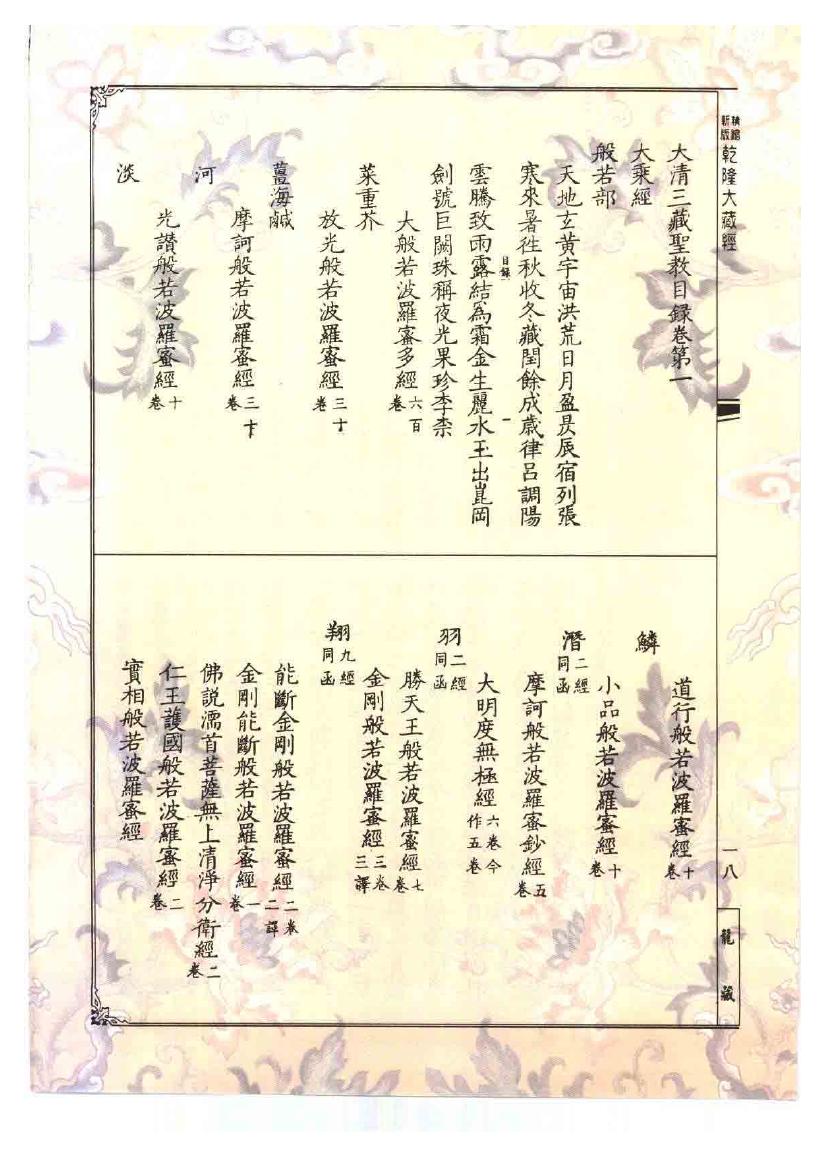 精縮新版 乾隆大藏經
大清三藏聖教目録卷第一
大乘經
般若部
天地玄黃宇宙洪荒日月盈昃辰宿列張
寒來暑徃秋收冬藏閏餘成歲律呂調陽
目録一 一
雲騰致雨露結為霜金生麗水玉出崑岡
劍號巨闕珠稱夜光果珍李柰
大般若波羅蜜多經六百卷
菜重芥
放光般若波羅蜜經三十卷
薑海鹹
摩訶般若波羅蜜經三十卷
河
光讚般若波羅蜜經十卷
淡
道行般若波羅蜜經十卷
鱗
小品般若波羅蜜經十卷
潛二經同函
摩訶般若波羅蜜鈔經五卷
大明度無極經六卷今作五卷
羽二經同函
勝天王般若波羅蜜經七卷
金剛般若波羅蜜經三卷三譯
翔九經同函
能斷金剛般若波羅蜜經二卷二譯
金剛能斷般若波羅蜜經一卷
佛説濡首菩薩無上清淨分衛經二卷
仁王護國般若波羅蜜經二卷
實相般若波羅蜜經
一八
龍藏